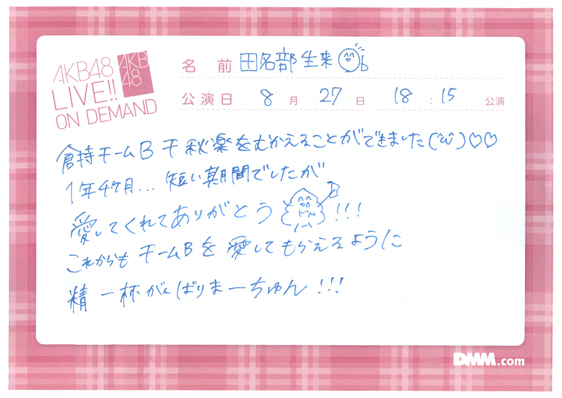 AKB48
LIVE!!
ON DEMAND
AKB
48
名前 田名部生来
公演日 8月27日 18:15公演
倉持チームB 千秋楽をむかえることができました(‘ω’)♡♡
1年4ヶ月... 短い期間でしたが
愛してくれてありがとう !!!
これからも チームBを 愛してもらえるように
精一杯がんばりまーちゅん!!!
DMM.com